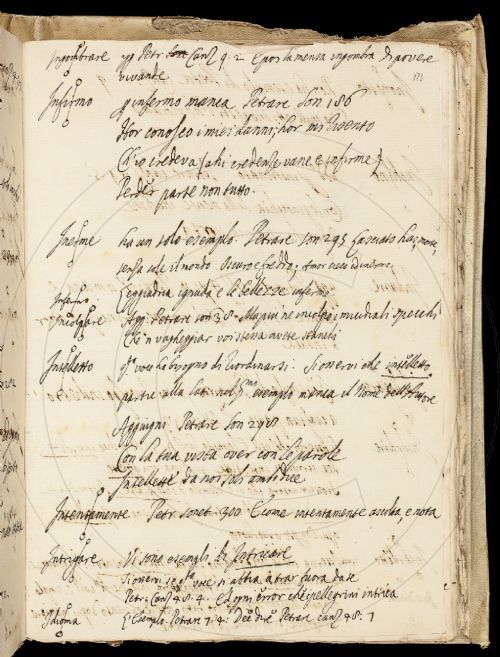 Ingombrare Petr Canz 9. 2 E poi la mensa ingombra di povere
vivande
173
Infermo infermo manca Petrarc Son 186
Hor conosco i miei danni, hor mi risento
Ch'io credeva (ahi credenze vane e infirme)
Perder parte non tutto.
Inerme ha un solo esempio. Petrarc son 295 Lasciato hai, morte,
senza sole il mondo Oscuro e freddo, Amor cieco ed inerme,
Leggiadria ignuda e le bellezze inferme
Agg. Petrarc son 38 Ma più ne incolpo i micidiali specchi
Che 'n vagheggiar voi stessa avete stanchi
Intelletto voce ha bisogno di riordinarsi. Si onervi che intelletto
partic alla lat. nel esempio manca il Nome dell'Autore
Aggiugni Petrarc Son 298
Con la tua vista over con le parole
Intellette da noi soli ambedue
Intentamente Petr sonet. 300 E come intentamente ascolta, e nota
Intrigare Vi sono esempli di Intricare
voce si abbia a trar fuora da te
Petr. Canz 48. 4. Ed ogni error che i pellegrini intrica
Idioma Esempio. Petrarc Petrarc canz 48. 7